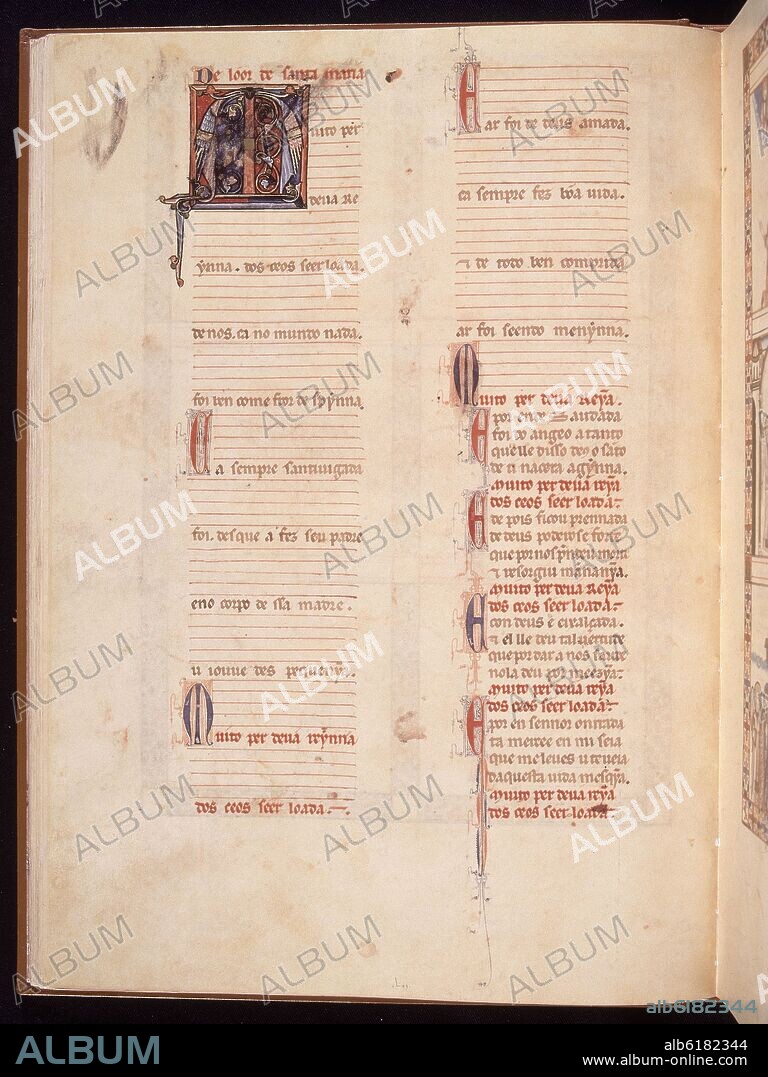 De loor de santa maria
Muito per
deua Re
ynna. dos ceos seer loada.
de nos. ca no mundo nada.
foi ben come fror de spynna
Ca sempre santiuigada
foi. des que a fez seu padre
eno corpo de ssa madre.
u iouue des pequenỹa.
Muito per deua reynna
dos ceos seer loada.
E ar foi de deus amada.
ca sempre fez bõa uida.
⁊ de todo ben comprida
ar foi seendo menynna.
Muito per deua Reỹa.
E por ende saudada
foi do angeo a tanto
que lle disso
de ti nacera agỹnna.
Muito per deua reỹa
dos ceos seer loada.
E depois ficou prennada
de deus
que por nos
⁊ resorgiu
Muito per deua reỹa
dos ceos seer loada.
E con deus e eixalçada.
⁊ el lle deu tal uertude
que por dar a nos saude
nola deu por meezỹa.
Muito per deua reỹa
dos ceos seer loada.
E por en sennor onrrada
ta mercee en mi seia
que me leues u te ueia
daquesta uida mesqỹa.
Muito per deua reỹa
dos ceos seer loada.
ALBUM
alb6182344
ALBUM
alb6182344
www.album-online.com